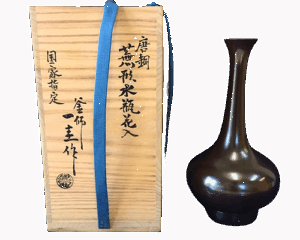 唐銅
蕪形水瓶花入
釜師
一圭作
国家指定